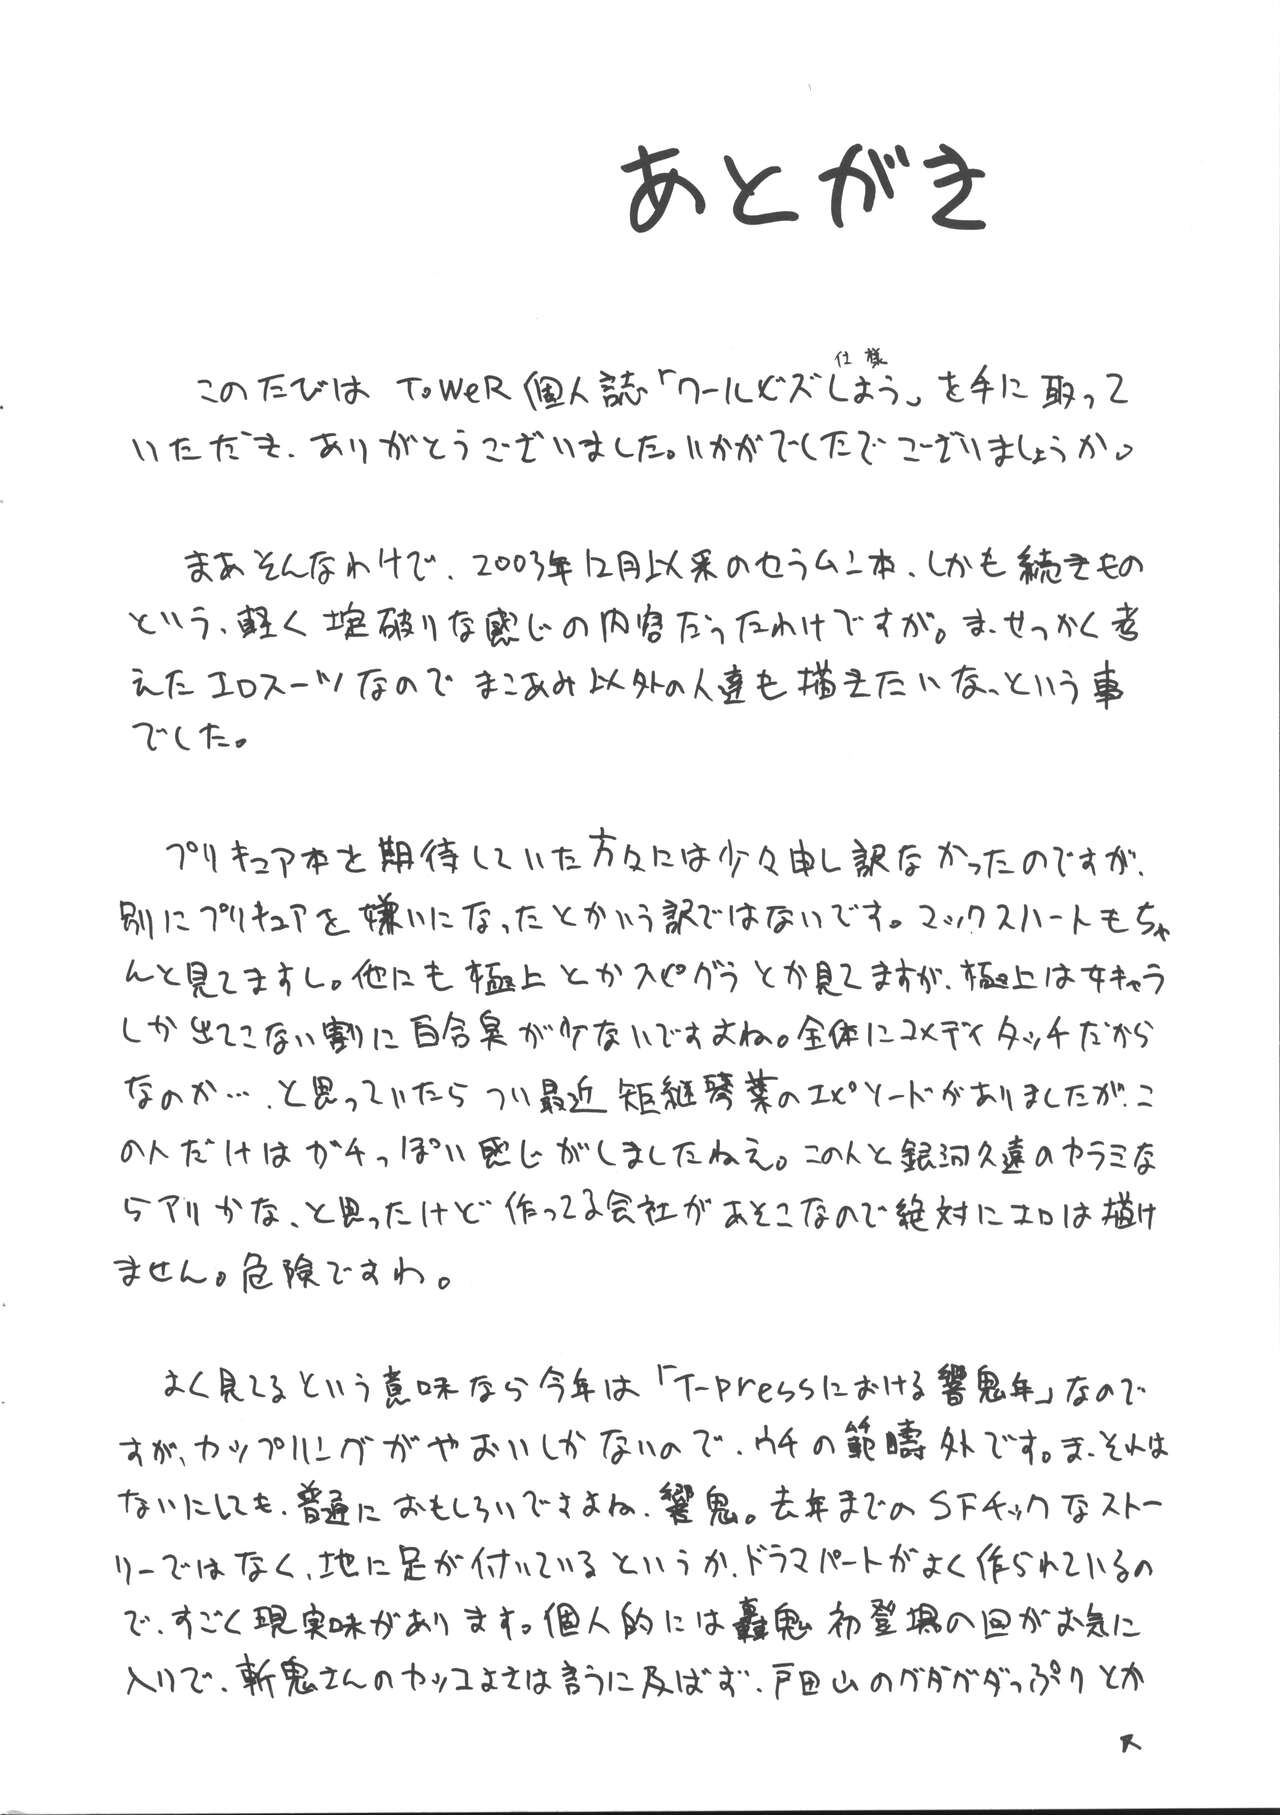 あとがき
仕様
このたびは ToWeR 個人誌「ワールドズしよう」を手に取って
いただき、ありがとうございました。いかがでしたでございましょうか。
まあそんなわけで、2003年12月以来のセラムン本、しかも続きもの
という、軽く掟破りな感じの内容だったわけですが。ま、せっかく考
えたエロスーツなのでまこあみ以外の人達も描きたいなっという事
でした。
プリキュア本を期待していた方々には少々申し訳なかったのですが、
別にプリキュアを嫌いになったとかいう訳ではないです。マックスハートもちゃ
んと見てますし。他にも極上とかスピグラとか見てますが、極上は女キャラ
しか出てこない割に百合臭が少ないですよね。全体にコメディタッチだから
なのか…、と思っていたらつい最近矩継琴葉のエピソードがありましたが、こ
の人だけはガチっぽい感じがしましたねえ。この人と銀河久遠のカラミな
らアリかな、と思ったけど作ってる会社があそこなので絶対にエロは描け
ません。危険ですわ。
よく見てるという意味なら今年は「T-pressにおける響鬼年」なので
すが、カップリングがやおいしかないので、ウチの範疇外です。ま、それは
ないにしても、普通におもしろいですよね、響鬼。去年までのSFチックなストー
リーではなく、地に足が付いているというか、ドラマパートがよく作られているの
で、すごく現実味があります。個人的には轟鬼初登場の回がお気に
入りで、斬鬼さんのカッコよさは言うに及ばず、戸田山のグダグダっぷりとか